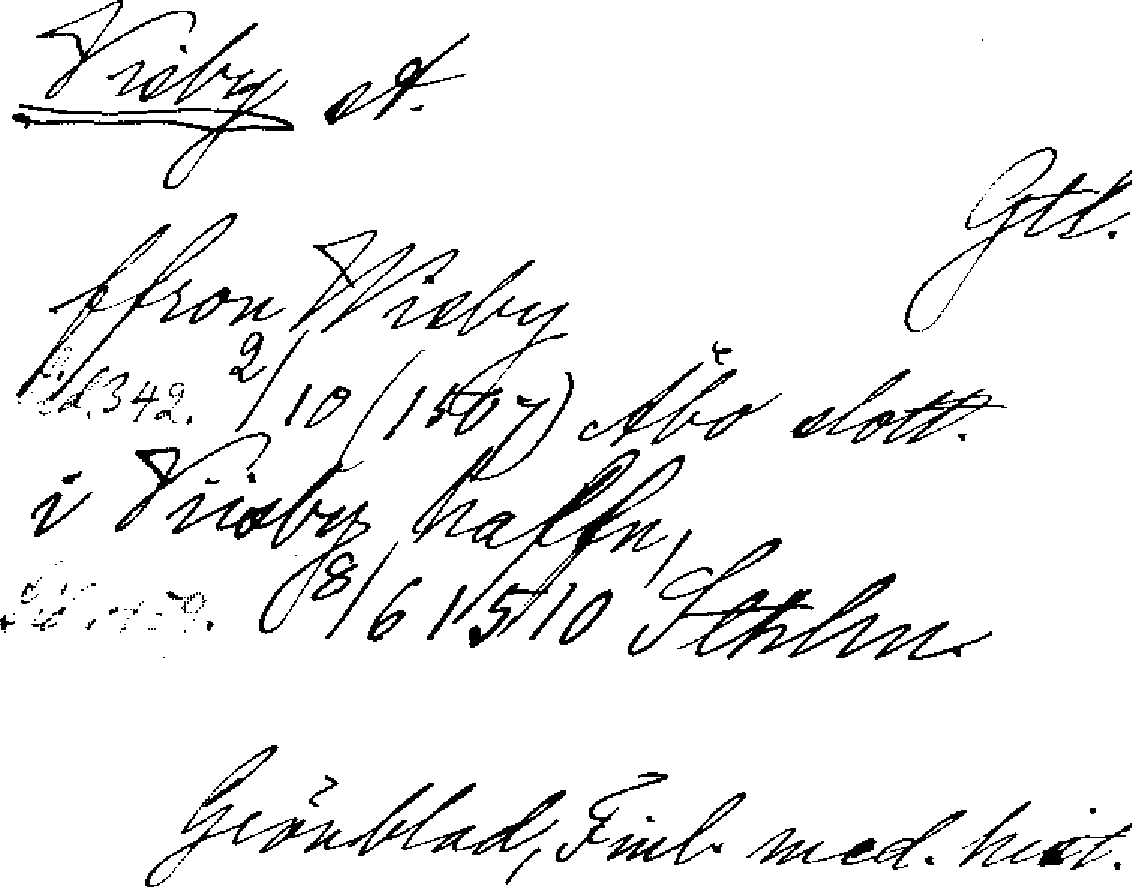 Visby st.
Gtl.
ffron Wisby
Sid. 342. 2/10 (1507) Åbo slott.
i Viisby haffn,
8/6 1510 Sthlm.
Grönblad, Finl. med. hist.